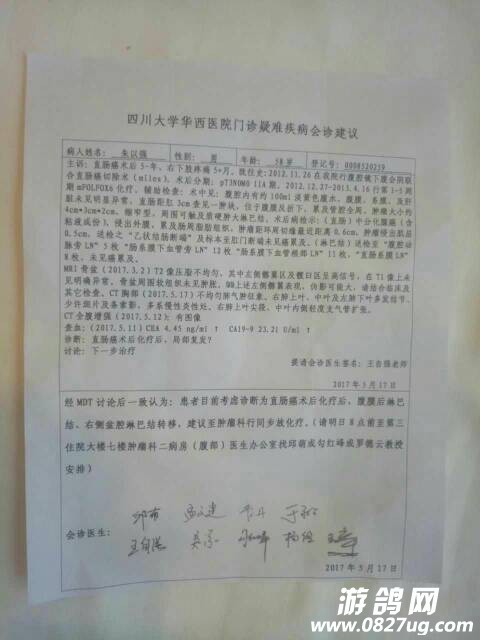 四川大学华西医院门诊疑难疾病会诊建议
病人姓名: 朱以强 性别: 男 年龄: 58岁 登记号: 0008520259
主诉: 直肠癌术后5-年, 右下肢疼痛5+月。既往史: 2012.11.26在我院行腹腔镜下腹会阴联
合直肠癌切除术(miles), 术后分期: pT3N0M0 IIA期。2012.12.27-2013.4.16行第1-5周
期mFOLFOX6化疗。辅助检查: 术中见: 腹腔内有约100ml淡黄色腹水, 腹膜、系膜、及肝
脏未见明显异常, 直肠距肛3cm查见一肿块, 位于腹膜反折下, 累及管腔全周, 肿瘤大小约
4cm*3cm*2cm, 缩窄型, 周围可触及质硬肿大淋巴结。术后病检示: (直肠)中分化腺癌(含
粘液成份), 浸出外膜, 累及肠周脂肪组织, 肿瘤距环周切缘最近距离0.6cm, 肿瘤浸出肠壁
0.5cm, 送检之"乙状结肠断端"及标本呈肛门断端未见癌累及。(淋巴结)送检呈"腹腔动
脉旁LN"5枚"肠系膜下血管旁LN"12枚"肠系膜下血管根部LN"11枚, "直肠系膜LN"
8枚, 未见癌累及。
MRI骨盆(2017.3.2)T2像压脂不均匀, 其中左侧髂窝区及髋臼区呈高信号, 在T1像上未
见明确异常, 骨盆周围软组织未见肿胀,
其它检查。CT胸部(2017.5.17)不均匀肺气肿征象。右肺上叶、中叶及左肺下叶多发结节、
少许斑片及条索影, 多系慢性炎性灶。右肺上叶尖段、中叶内侧轻度支气管扩张。
CT全腹增强(2017.5.12): 有图像
查血: (2017.5.11) CEA 4.45 ng/ml ↑ CA19-9 23.21 U/ml ↑
诊断: 直肠癌术后化疗后, 局部复发?
讨论: 下一步治疗
提请会诊医生签名: 王自强老师
2017年5月17日
经MDT讨论后一致认为: 患者目前考虑诊断为直肠癌术后化疗后, 腹膜后淋巴
结、右侧盆腔淋巴结转移, 建议至肿瘤科行同步放化疗。(请明日8点前至第三
住院大楼七楼肿瘤科二病房(腹部)医生办公室找邱萌或勾红峰或罗德云教授
安排)
会诊医生:
2017年5月17日
游鸽网
www.0827ug.com